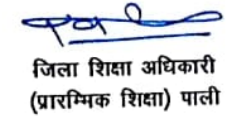 जिला शिक्षा अधिकारी
(प्रारम्भिक शिक्षा) पाली